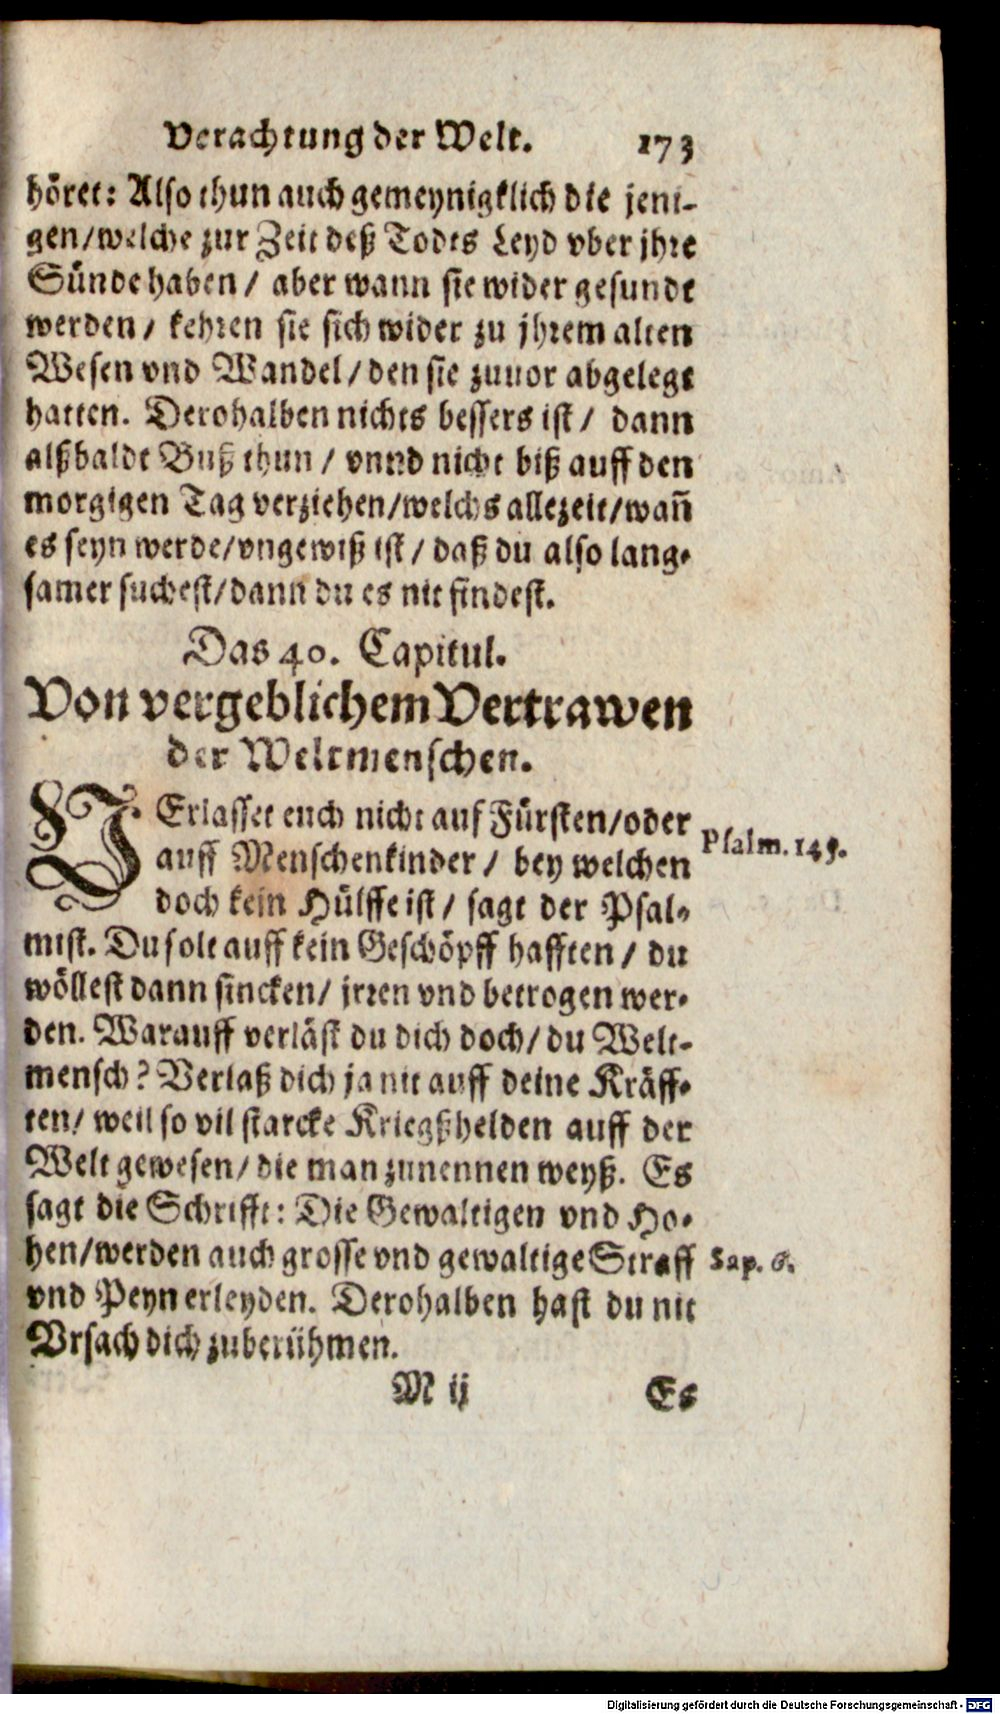 Verachtung der Welt. 173
höret: Also thun auch gemeynigklich die jeni-
gen/welche zur Zeit deß Todts Leyd vber jhre
Sünde haben / aber wann sie wider gesundt
werden / kehren sie sich wider zu jhrem alten
Wesen vnd Wandel / den sie zuuor abgelegt
hatten. Derohalben nichts bessers ist / dann
alßbaldt Buß thun / vnnd nicht biß auff den
morgigen Tag verziehen/welchs allezeit/wañ
es seyn werde/vngewiß ist / daß du also lang-
samer suchest/dann du es nit findest.
Das 40. Capitul.
Von vergeblichem Vertrawen
der Weltmenschen.
VErlasset euch nicht auf Fürsten/oder
auff Menschenkinder / bey welchen
Psalm. 145.
doch kein Hülffe ist / sagt der Psal-
mist. Du solt auff kein Geschöpff hafften / du
wöllest dann sincken/ jrren vnd betrogen wer-
den. Warauff verläst du dich doch/ du Welt-
mensch? Verlaß dich ja nit auff deine Kräff-
ten/ weil so vil starcke Kriegßhelden auff der
Welt gewesen/ die man zunennen weyß. Es
sagt die Schrifft: Die Gewaltigen vnd Ho-
hen/werden auch grosse vnd gewaltige Straff
Sap. 6.
vnd Peyn erleyden. Derohalben hast du nit
Vrsach dich zuberühmen.
M ij Es
Digitalisierung gefördert durch die Deutsche Forschungsgemeinschaft - DFG